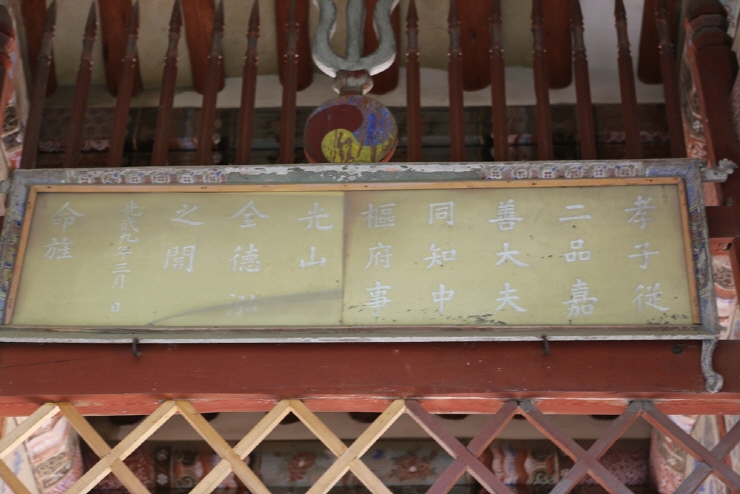 孝子從
二品嘉
善大夫
同知中
樞府事
光山
德
之閭
光武九年三月 日
命旌